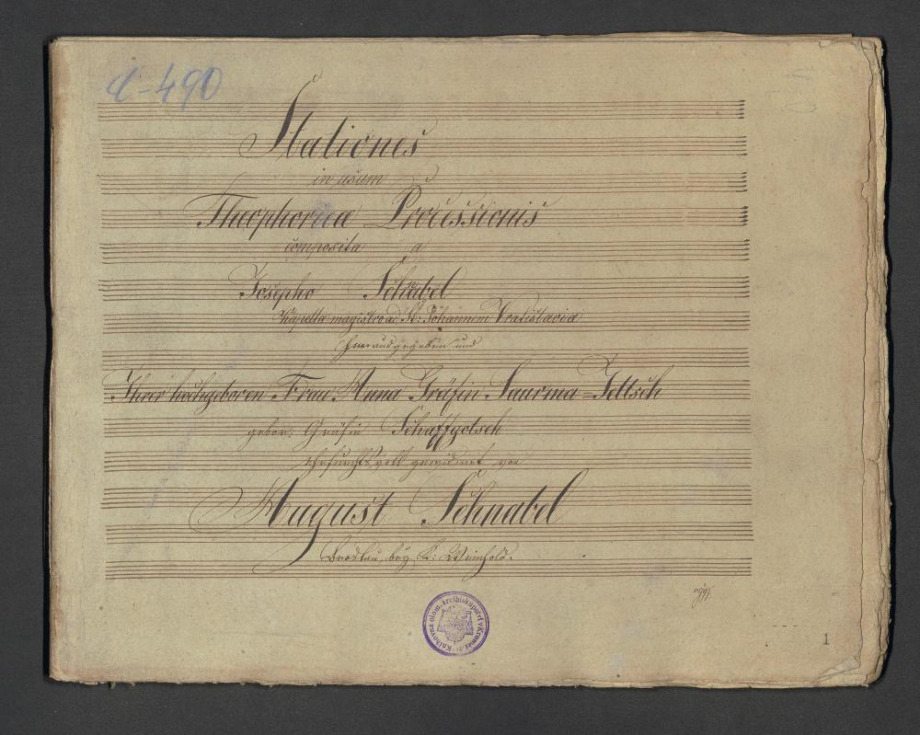 C-490
Stationes
in usum
Theophoricae Processionis
composita a
Josepho Schnabel
Kapellae magistro ad St: Johannem Vratislavia
herausgegeben und
Ihrer hochgeboren Frau Anna Gräfin Saurma-Jeltsch
gebor: Gräfin Schaffgotsch
ehrfurchtsvoll gewidmet von
August Schnabel
Breslau, bey C: Weinhold.
1